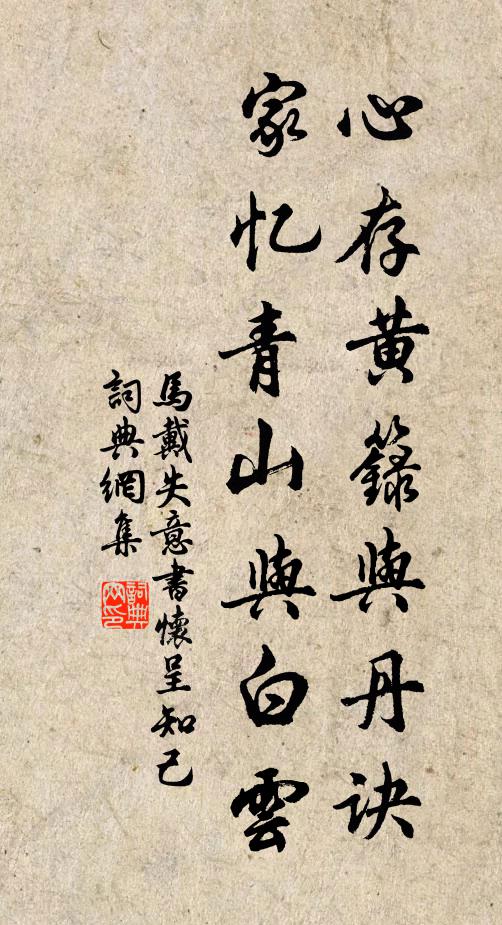 心存黄籙與丹诀
家忆青山與白雲
馬戴失意書懷呈知己
詞典網集
詞典网印